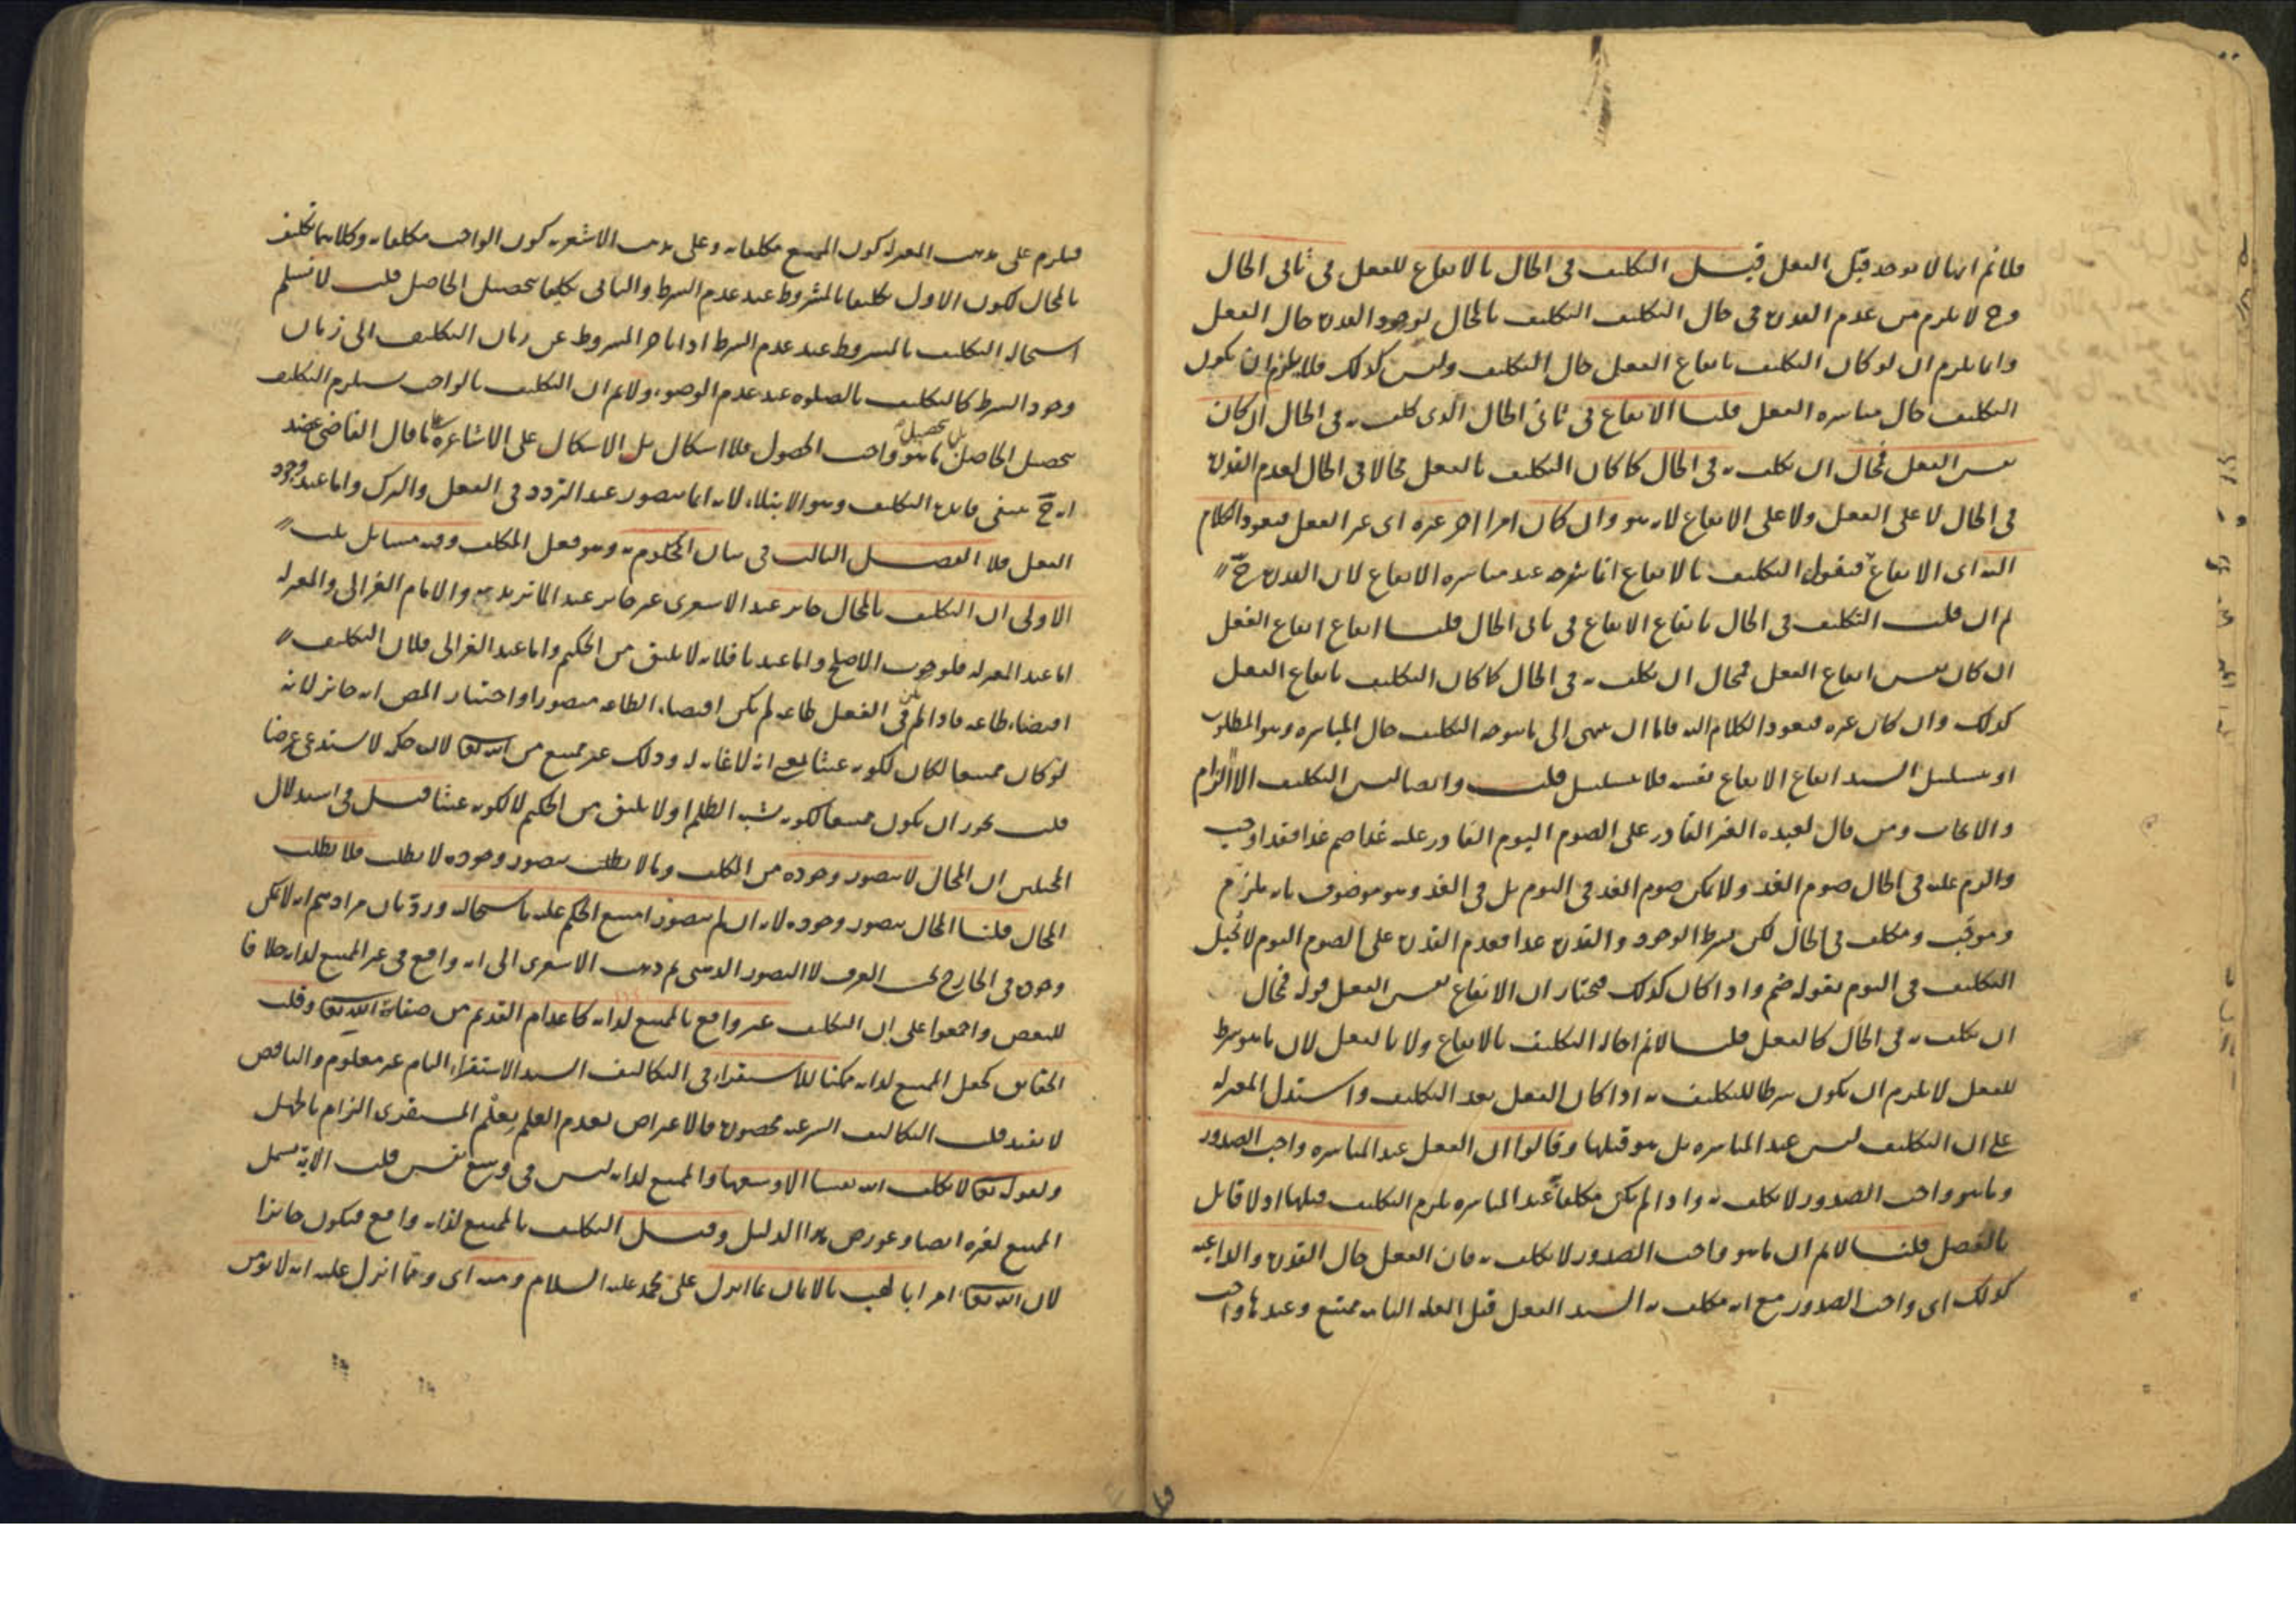 فلانم انها لا توجد قبل الفعل قيل التكليف في الحال بالايقاع للفعل في ثاني الحال
وح لا يلزم من عدم القدرة في حال التكليف التكليف بالمحال لوجود القدرة حال الفعل
وانما يلزم ان لو كان التكليف بايقاع الفعل حال التكليف وليس كذلك فلا يلزم ان يكون
التكليف حال مباشرة الفعل قلنا الايقاع في ثاني الحال الذي كلف به في الحال ان كان
نفس الفعل فمحال ان يكلف به في الحال كما كان التكليف بالفعل محالا في الحال لعدم القدرة
في الحال لا على الفعل ولا على الايقاع لانه هو وان كان امرا اخر غيره اى غير الفعل فيعود الكلام
اليه اى الايقاع فيقول التكليف بالايقاع انما يتوجه عند مباشرة الايقاع لان القدرة ح
ثم ان قلت التكليف في الحال بايقاع الايقاع في ثاني الحال قلنا ايقاع ايقاع الفعل
ان كان نفس ايقاع الفعل فمحال ان يكلف به في الحال كما كان التكليف بايقاع الفعل
كذلك وان كان غيره فيعود الكلام اليه فاما ان ينتهى الى ما يتوجه التكليف حال المباشرة وهو المطلوب
او يتسلسل السيد ايقاع الايقاع نفسه فلا تسلسل قلت وايضا ليس التكليف الا الالزام
والايجاب ومن قال لعبده الغير القادر على الصوم اليوم القادر عليه غدا صم غدا فقد اوجب
والزم عليه في الحال صوم الغد ولا يمكن صوم الغد في اليوم بل في الغد وهو موصوف بانه ملزم
وموجب ومكلف في الحال لكن بشرط الوجود والقدرة غدا فعدم القدرة على الصوم اليوم لا يحيل
التكليف في اليوم بقوله صم واذا كان كذلك فنختار ان الايقاع نفس الفعل قوله فمحال
ان يكلف به في الحال كالفعل قلنا لانم احالة التكليف بالايقاع ولا بالفعل لان ما هو شرط
للفعل لا يلزم ان يكون شرطا للتكليف به اذا كان الفعل بعد التكليف واستدل المعتزلة
على ان التكليف ليس عند المباشرة بل هو قبلها وقالوا ان الفعل عند المباشرة واجب الصدور
وما هو واجب الصدور لا يكلف به واذا لم يكن مكلفا عند المباشرة يلزم التكليف قبلها اذ لا قائل
بالفصل قلنا لانم ان ما هو واجب الصدور لا يكلف به فان الفعل حال القدرة والداعية
كذلك اى واجب الصدور مع انه مكلف به السيد الفعل قبل العلة التامة ممتنع وعندها واجب
فيلزم على مذهب المعتزلة كون الممتنع مكلفا به وعلى مذهب الاشعرية كون الواجب مكلفا به وكلاهما تكليف
بالمحال لكون الاول تكليفا بالمشروط عند عدم الشرط والثاني تكليفا بتحصيل الحاصل قلت لا نسلم
استحالة التكليف بالمشروط عند عدم الشرط اذا تاخر المشروط عن زمان التكليف الى زمان
وجود الشرط كالتكليف بالصلوة عند عدم الوضوء ولانم ان التكليف بالواجب يستلزم التكليف
بتحصيل الحاصل بل تحصيل ما هو واجب الحصول فلا اشكال بل الاشكال على الاشاعرة ما قال القاضي عضد
انه ح ينتفى فائدة التكليف وهو الابتلاء لانه انما يتصور عند التردد في الفعل والترك واما عند وجود
الفعل فلا الفصل الثالث في بيان المحكوم به وهو فعل المكلف وفيه مسائل ثلث
الاولى ان التكليف بالمحال جائز عند الاشعرى غير جائز عند الماتريدية والامام الغزالى والمعتزلة
اما عند المعتزلة فلوجوب الاصلح واما عندنا فلانه لا يليق من الحكيم واما عند الغزالى فلان التكليف
اقتضاء طاعة فاذا لم يكن في الفعل طاعة لم يكن اقتضاء الطاعة متصورا واختيار المص انه جائز لانه
لو كان ممتنعا لكان لكونه عبثا بمعنى انه لا غاية له وذلك غير ممتنع من الله تعالى لان حكمه لا يستدعى غرضا
قلت يجوز ان يكون ممتنعا لكونه شبه الظلم او لا يليق من الحكيم لا لكونه عبثا قيل في استدلال
المحيلين ان المحال لا يتصور وجوده من المكلف وما لا يتصور وجوده لا يطلب فلا يطلب
المحال قلنا المحال يتصور وجوده لانه ان لم يتصور امتنع الحكم عليه باستحالته ورد بان مرادهم انه لا يمكن
وجوده في الخارج لا التصور الذهنى ثم ذهب الاشعرى الى انه واقع في غير الممتنع لذاته خلافا
للبعض واجمعوا على ان التكليف غير واقع بالممتنع لذاته كاعدام القديم من صفات الله تعالى وقلب
الحقائق كجعل الممتنع لذاته ممكنا للاستقراء في التكاليف السيد الاستقراء التام غير معلوم والناقص
لا يفيد قلت التكاليف الشرعية محصورة فالاعتراض بعدم العلم بعلم المستقرى التزام بالجهل
ولقوله تعالى لا يكلف الله نفسا الا وسعها والممتنع لذاته ليس في وسع نفس قلت الاية تشمل
الممتنع لغيره ايضا وعورض هذا الدليل وقيل التكليف بالممتنع لذاته واقع فيكون جائزا
لان الله تعالى امر ابا لهب بالايمان بما انزل على محمد عليه السلام ومنه اى ومما انزل عليه انه لا يؤمن